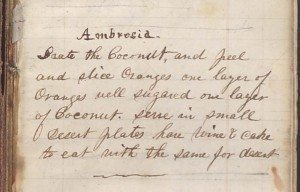 Ambrosia.
Grate the Coconut, and peel
and slice Oranges one layer of
Oranges well sugared one layer
of Coconut. serve in small
desert plates have wine & cake
to eat with the same for desert